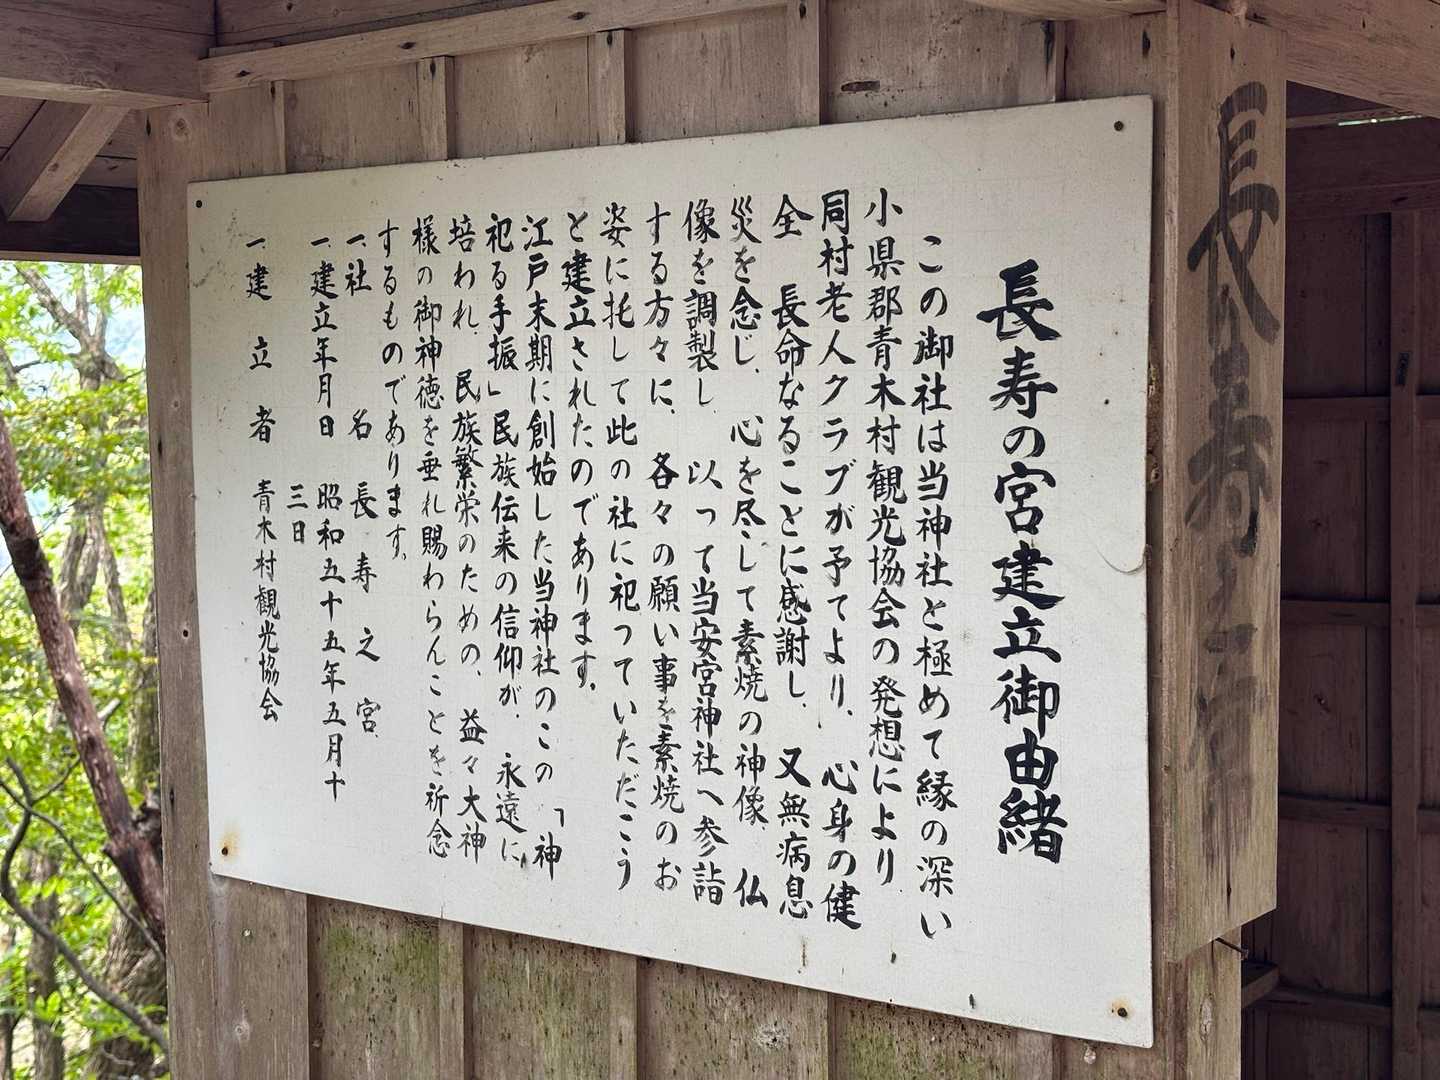 長寿の宮建立御由緒
この御社は当神社と極めて縁の深い
小県郡青木村観光協会の発想により
同村老人クラブが予てより、心身の健
全　長命なることに感謝し、又無病息
災を念じ、心を尽して素焼の神像、仏
像を調製し、以って当安宮神社へ参詣
する方々に、各々の願い事を素焼のお
姿に托して此の社に祀っていただこう
と建立されたのであります。
江戸末期に創始した当神社のこの「神
祀る手振」民族伝来の信仰が、永遠に
培われ、民族繁栄のための、益々大神
様の御神徳を垂れ賜わらんことを祈念
するものであります。
一、社　名　長寿之宮
一、建立年月日　昭和五十五年五月十
三日
一、建立者　青木村観光協会
長寿之宮